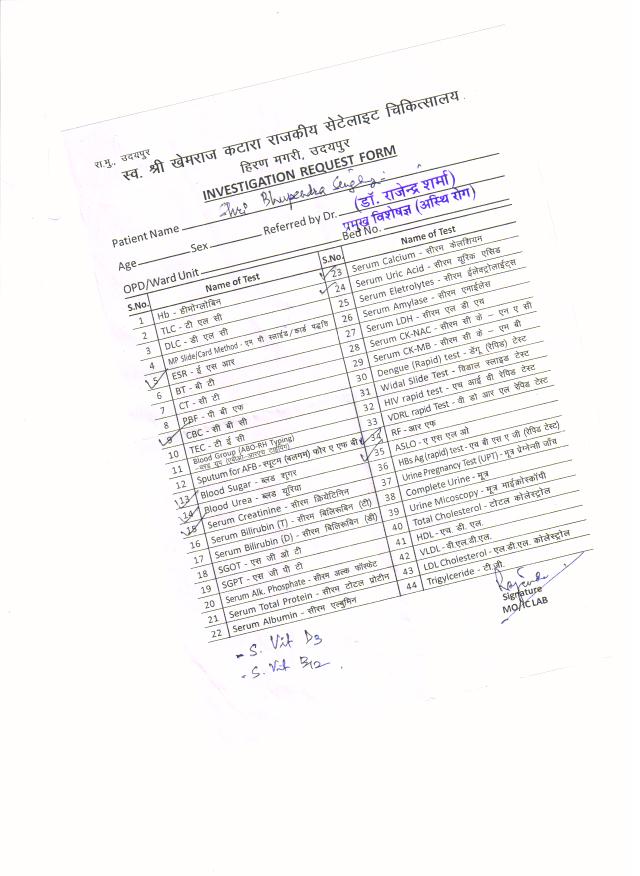 रा.मु., उदयपुर
स्व. श्री खेमराज कटारा राजकीय सेटेलाइट चिकित्सालय
हिरण मगरी, उदयपुर
INVESTIGATION REQUEST FORM
Patient Name Shri Bhupendra Singh ji
Age Sex Referred by Dr. (डॉ. राजेन्द्र शर्मा)
प्रमुख विशेषज्ञ (अस्थि रोग)
OPD/Ward Unit Bed No.
S.No. Name of Test
1 Hb - हीमोग्लोबिन
2 TLC - टी एल सी
3 DLC - डी एल सी
4 MP Slide/Card Method - एम पी स्लाईड/कार्ड पद्धति
5 ESR - ई एस आर
6 BT - बी टी
7 CT - सी टी
8 PBF - पी बी एफ
9 CBC - सी बी सी
10 TEC - टी ई सी
11 Blood Group (ABO-RH Typing)
12 Sputum for AFB - स्पूटम (बलगम) फोर ए एफ बी
13 Blood Sugar - ब्लड शूगर
14 Blood Urea - ब्लड यूरिया
15 Serum Creatinine - सीरम क्रियेटिनिन
16 Serum Bilirubin (T) - सीरम बिलिरूबिन (टी)
17 Serum Bilirubin (D) - सीरम बिलिरूबिन (डी)
18 SGOT - एस जी ओ टी
19 SGPT - एस जी पी टी
20 Serum Alk. Phosphate - सीरम अल्क फॉस्फेट
21 Serum Total Protein - सीरम टोटल प्रोटीन
22 Serum Albumin - सीरम एल्बुमिन
S.No. Name of Test
23 Serum Calcium - सीरम केलशियम
24 Serum Uric Acid - सीरम यूरिक एसिड
25 Serum Eletrolytes - सीरम ईलेक्ट्रोलाईट्स
26 Serum Amylase - सीरम एमाईलेस
27 Serum LDH - सीरम एल डी एच
28 Serum CK-NAC - सीरम सी के - एन ए सी
29 Serum CK-MB - सीरम सी के - एम बी
30 Dengue (Rapid) test - डेंगू (रैपिड) टेस्ट
31 Widal Slide Test - विडाल स्लाइड टेस्ट
32 HIV rapid test - एच आई वी रेपिड टेस्ट
33 VDRL rapid Test - वी डी आर एल रेपिड टेस्ट
34 RF - आर एफ
35 ASLO - ए एस एल ओ
36 HBs Ag (rapid) test - एच बी एस ए जी (रेपिड टेस्ट)
37 Urine Pregnancy Test (UPT) - मूत्र प्रेग्नेन्सी जाँच
38 Complete Urine - मूत्र
39 Urine Micoscopy - मूत्र माईक्रोस्कॉपी
40 Total Cholesterol - टोटल कोलेस्ट्रोल
41 HDL - एच. डी. एल.
42 VLDL - वी.एल.डी.एल.
43 LDL Cholesterol - एल.डी.एल. कोलेस्ट्रोल
44 Trigylceride - टी.जी.
Signature
MO/IC LAB
- S. Vit D3
- S. Vit B12